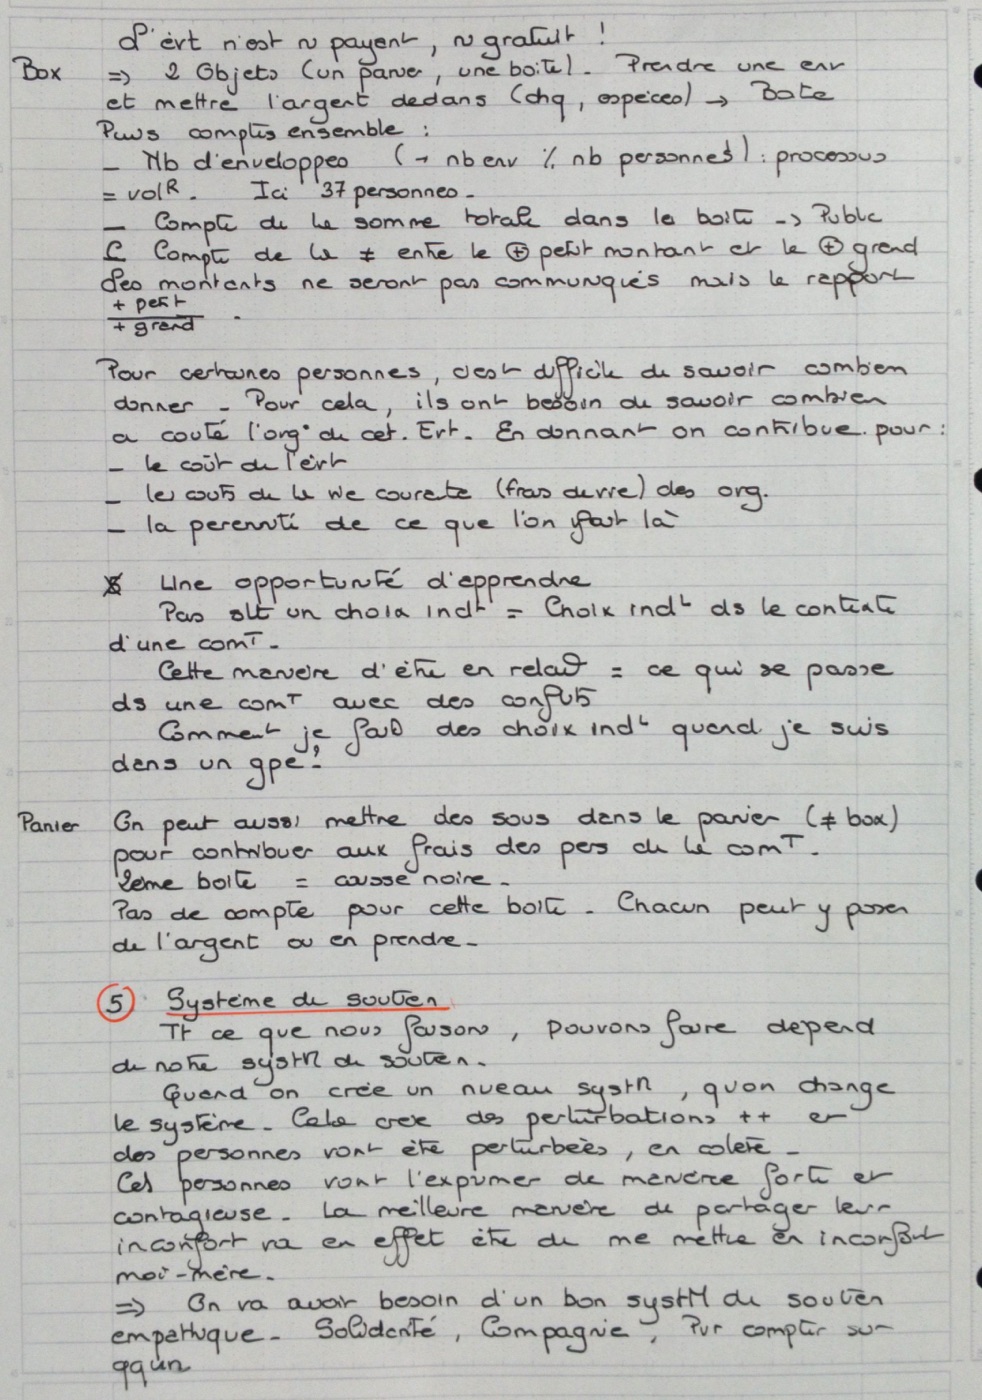 L'évt n'est ni payant, ni gratuit !
Box => 2 Objets (un panier, une boite). Prendre une env
et mettre l'argent dedans (chq, espèces) → Boite
Puis comptes ensemble :
- Nb d'enveloppes (→ nb env % nb personnes) : processus
= volR. Ici 37 personnes.
- Compte de la somme totale dans la boite -> Public
C Compte de la ≠ entre le ⊕ petit montant et le ⊕ grand
Les montants ne seront pas communiqués mais le rapport
+ petit
+ grand .
Pour certaines personnes, c'est difficile de savoir combien
donner - Pour cela, ils ont besoin de savoir combien
a couté l'org° de cet. Evt. En donnant on contribue pour :
- le coût de l'évt
- les couts de la vie courante (frais de vie) des org.
- la perennité de ce que l'on fait là
Une opportunité d'apprendre
Pas slt un choix indL = Choix indL ds le contexte
d'une comT.
Cette manière d'être en relat° = ce qui se passe
ds une comT avec des conflits
Comment je fais des choix indL quand je suis
dans un gpe !
Panier On peut aussi mettre des sous dans le panier (≠ box)
pour contribuer aux frais des pers de la comT.
2ème boite = caisse noire.
Pas de compte pour cette boite. Chacun peut y poser
de l'argent ou en prendre.
5 Système de soutien
Tt ce que nous faisons, pouvons faire depend
de notre systM de soutien.
Quand on crée un nveau systM, qu'on change
le système. Cela crée des perturbations ++ et
des personnes vont être perturbées, en colère -
Ces personnes vont l'exprimer de manière forte et
contagieuse. La meilleure manière de partager leur
inconfort va en effet être de me mettre en inconfort
moi-même.
=> On va avoir besoin d'un bon systM de soutien
empathique. Solidarité, Compagnie, Pvr compter sur
qqun